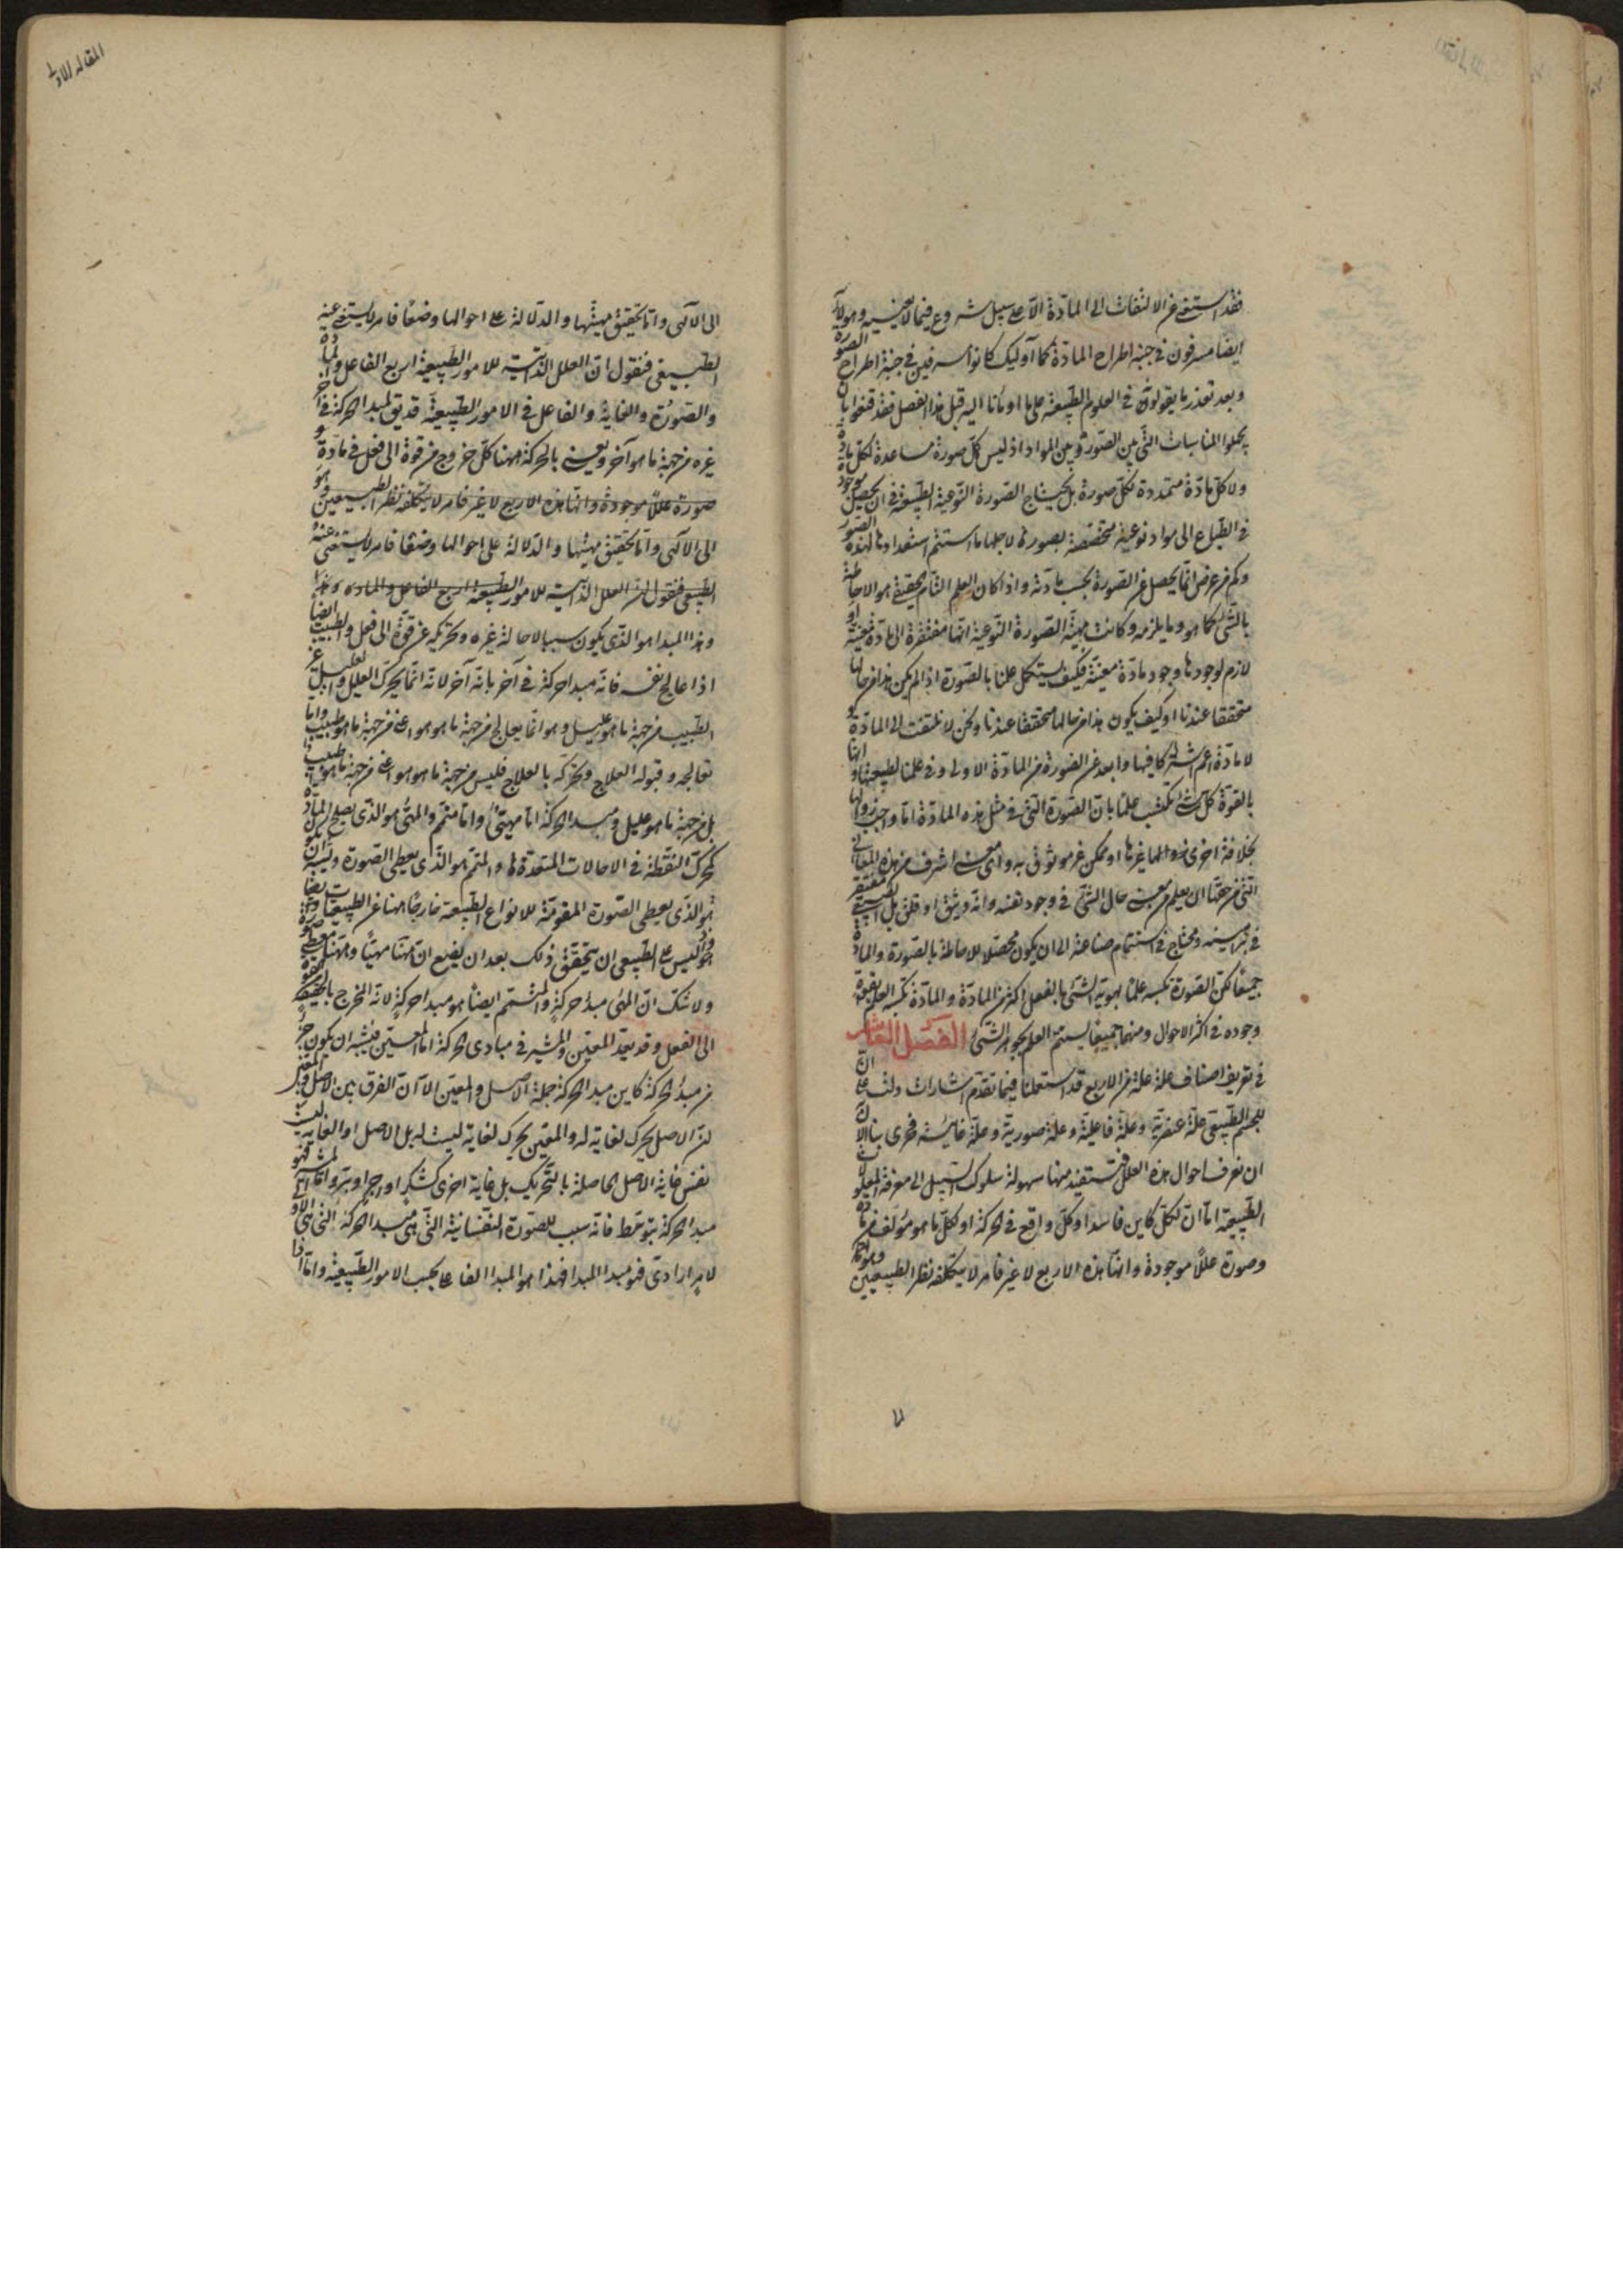 فقد استغنى عن الالتفات الى المادة الا على سبيل شروع فيما لا يعنيه وهولاء
ايضا مسرفون فى جنبة اطراح المادة كما اوليك كانوا مسرفين فى جنبة اطراح الصورة
وبعد تعذر ما يقولونه فى العلوم الطبيعية على ما اومانا اليه قبل هذا الفصل فقد قنعوا بان
يجهلوا المناسبات التى بين الصور وبين المواد اذ ليس كل صورة مساعدة لكل مادة
ولا كل مادة متمهدة لكل صورة بل يحتاج الصورة النوعية الطبيعية فى ان يحصل موجودة
فى الطباع الى مواد نوعية مخصصة بصورة لاجلها ما استتم استعدادها لهذه الصور
وكم من عرض انما يحصل عن الصورة بحسب مادته واذا كان العلم التام الحقيقى هو الاحاطة
بالشى كما هو وما يلزمه وكانت مهية الصورة النوعية انها مفتقرة الى مادة معينة او
لازم لوجودها وجود مادة معينة فكيف يستكمل علمنا بالصورة اذا لم يكن هذا من حالها
متحققا عندنا او كيف يكون هذا من حالها متحققا عندنا ونحن لا نلتفت الى المادة و
لا مادة اعم اشتراكا فيها وابعد عن الصورة من المادة الاولى وفى علمنا بطبيعتها وانها
بالقوة كل شى نكتسب علما بان الصورة التى فى مثل هذه المادة اما واجب زوالها
بخلافة اخرى غيرها او ممكن غير موثوق به واى معنى اشرف من هذه المعانى
التى من حقها ان يعلم من معنى حال الشى فى وجود نفسه وانه وثيق او قلق بل الطبيعى مفتقر
فى براهينه ومحتاج فى استتمام صناعته الى ان يكون محصلا للاحاطة بالصورة والمادة
جميعا لكن الصورة تكسبه علما بهوية الشى بالفعل اكثر من المادة والمادة تكسبه العلم بقوة
وجوده فى اكثر الاحوال ومنهما جميعا يستتم العلم بجوهر الشى الفصل العاشر
فى تعريف اصناف علة علة من الاربع قد استعملنا فيما تقدم اشارات دلت على ان
للجسم الطبيعى علة عنصرية وعلة فاعلية وعلة صورية وعلة غائية فحرى بنا الان
ان نعرف احوال هذه العلل فنستفيد منها سهولة سلوك السبيل الى معرفة المعلولات
الطبيعية اما ان لكل كاين فاسد او كل واقع فى الحركة او لكل ما هو مؤلف من مادة
وصورة عللا موجودة وانها هذه الاربع لا غير فامر لا يتكلفه نظر الطبيعيين وهو
الى الالهى واما تحقيق مهيتها والدلالة على احوالها وضعا فامر لا يستغنى عنه
الطبيعى فنقول ان العلل الذاتية للامور الطبيعية اربع الفاعل والمادة
والصورة والغاية والفاعل فى الامور الطبيعية قد يق لمبدا الحركة فى آخر
غيره من جهة ما هو آخر ويعنى بالحركة ههنا كل خروج من قوة الى فعل فى مادة و
صورة عللا موجودة وانها هذه الاربع لا غير فامر لا يتكلفه نظر الطبيعيين وهو
الى الالهى واما تحقيق مهيتها والدلالة على احوالها وضعا فامر لا يستغنى عنه
الطبيعى فنقول ان العلل الذاتية للامور الطبيعية اربع الفاعل والمادة
وهذا المبدا هو الذى يكون سببا لاحالة غيره وتحريكه عن قوة الى فعل والطبيب ايضا
اذا عالج نفسه فانه مبدا حركة فى آخر بانه آخر لانه انما يحرك العليل والعليل غير
الطبيب من جهة ما هو عليل وهو انما يعالج من جهة ما هو هو اعنى من جهة ما هو طبيب واما
تعالجه وقبوله العلاج وتحركه بالعلاج فليس من جهة ما هو هو اعنى من جهة ما هو طبيب
بل من جهة ما هو عليل ومبدا الحركة اما مهيئ واما متمم والمهيئ هو الذى يصلح المادة
كمحرك النطفة فى الاحالات المتعدة والمتمم هو الذى يعطى الصورة ويشبه ان يكون
هو الذى يعطى الصورة المقومة للانواع الطبيعية خارجا
وليس على الطبيعى ان يتحقق ذلك بعد ان يضع ان ههنا مهيئا وههنا معطى صورة
ولا شك ان المهيئ مبدا حركة والمتمم ايضا هو مبدا حركة لانه المخرج بالحقيقة
الى الفعل وقد يعد المعين والمشير فى مبادى الحركة اما المعين فيشبه ان يكون جزءا
من مبدا الحركة كاين مبدا الحركة جملة الاصل والمعين الا ان الفرق بين الاصل والمعين
ان الاصل يحرك لغاية له والمعين يحرك لغاية ليست له بل للاصل او لغاية ليست
نفس غاية الاصل الحاصلة بالتحريك بل غاية اخرى كشكر او اجر او بر واما المشير فهو
مبدا الحركة بتوسط فانه سبب للصورة النفسانية التى هى مبدا الحركة التى هى الاولى
لامر ارادى فهو مبدا المبدا فهذا هو المبدا الفاعلى بحسب الامور الطبيعية واما اذا
المقالة الاولى